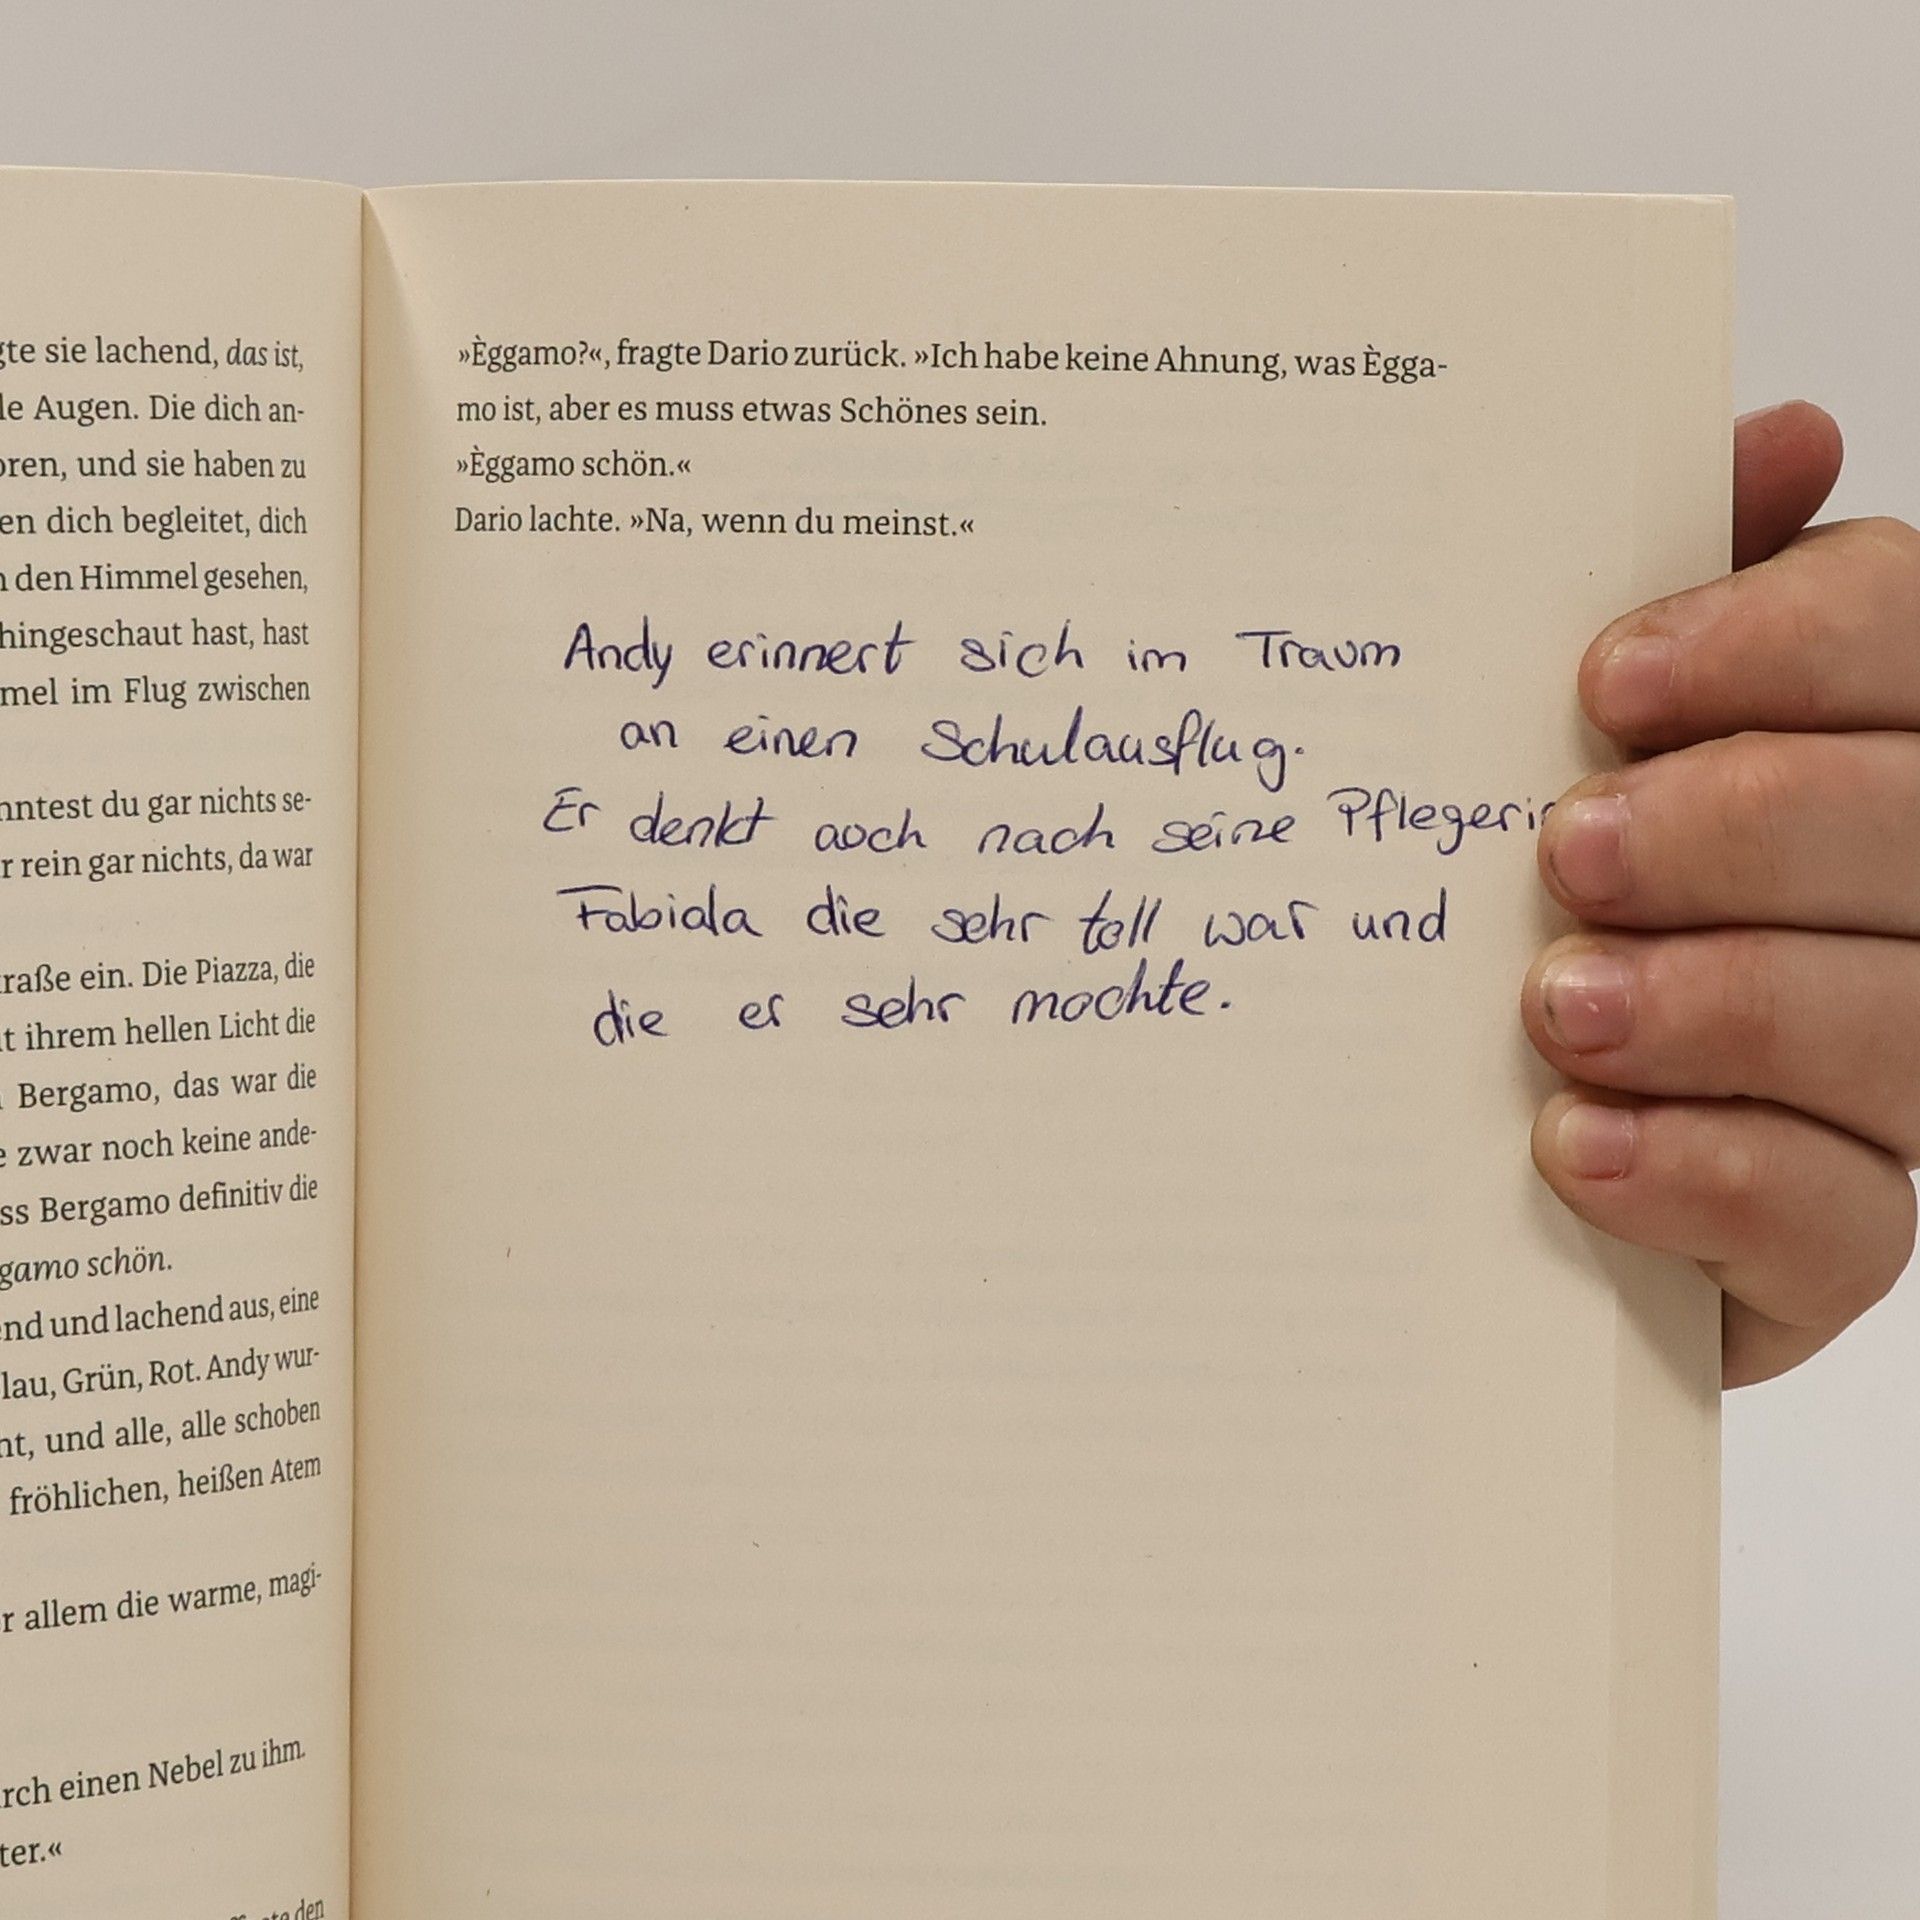 gte sie lachend, das ist,
le Augen. Die dich an-
oren, und sie haben zu
en dich begleitet, dich
n den Himmel gesehen,
hingeschaut hast, hast
mel im Flug zwischen
nntest du gar nichts se-
r rein gar nichts, da war
raße ein. Die Piazza, die
t ihrem hellen Licht die
Bergamo, das war die
e zwar noch keine ande-
ss Bergamo definitiv die
gamo schön.
end und lachend aus, eine
lau, Grün, Rot. Andy wur-
ht, und alle, alle schoben
fröhlichen, heißen Atem
r allem die warme, magi-
rch einen Nebel zu ihm.
ter.«
den
»Èggamo?«, fragte Dario zurück. »Ich habe keine Ahnung, was Ègga-
mo ist, aber es muss etwas Schönes sein.
»Èggamo schön.«
Dario lachte. »Na, wenn du meinst.«
Andy erinnert sich im Traum
an einen Schulausflug.
Er denkt auch nach seine Pflegerin
Fabiola die sehr toll war und
die er sehr mochte.